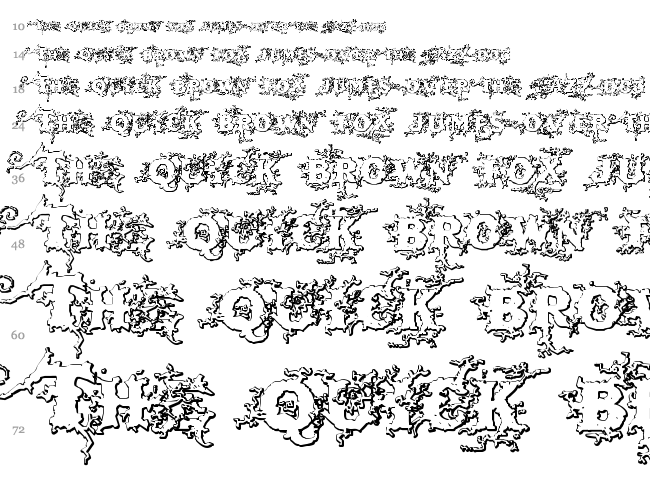 10 THE QUICK BROWN FOX JUMPS OVER THE LAZY DOG
14 THE QUICK BROWN FOX JUMPS OVER THE LAZY DOG
18 THE QUICK BROWN FOX JUMPS OVER THE LAZY DOG
24 THE QUICK BROWN FOX JUMPS OVER TH
36 THE QUICK BROWN FOX JU
48 THE QUICK BROWN F
60 THE QUICK BRO
72 THE QUICK B